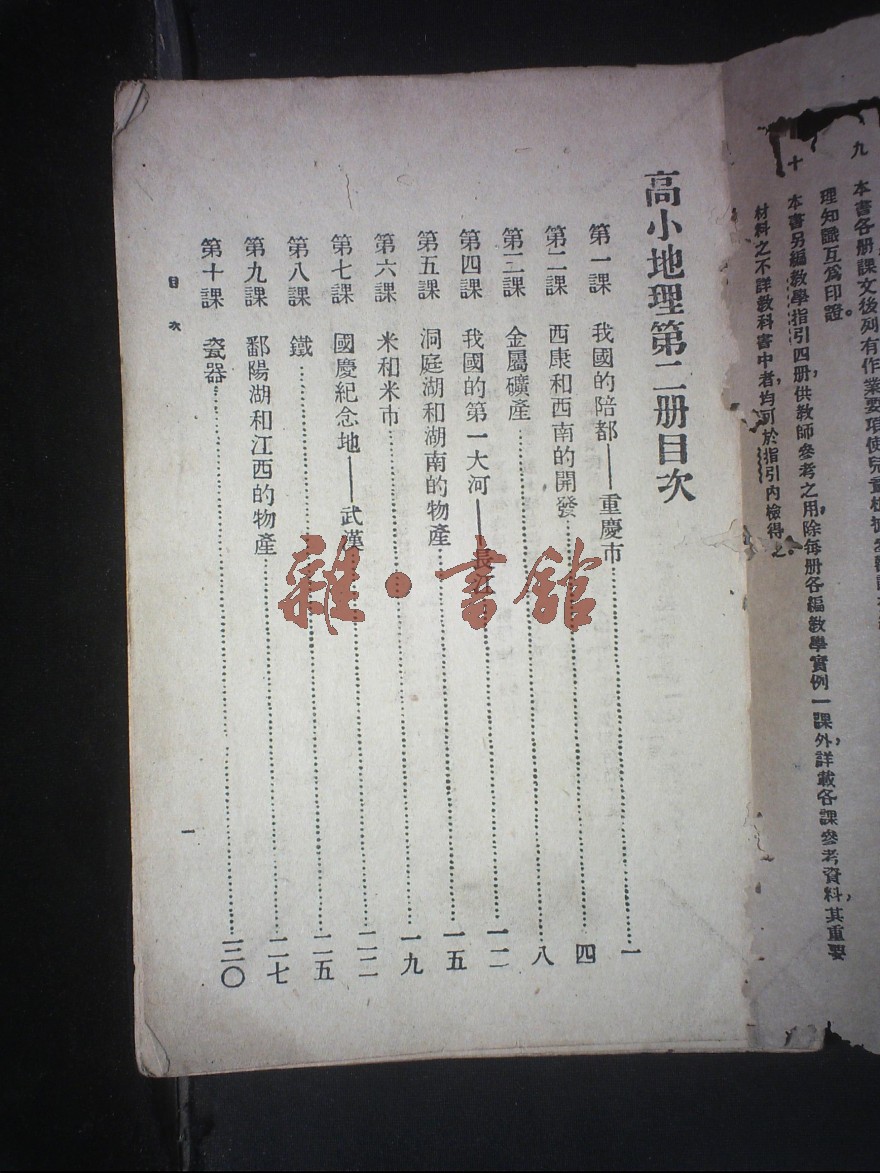 九 本書各册課文後列有作業要項使兒童
理知識互爲印證。
十 本書另編教學指引四册,供教師參考之用,除每册各編教學實例一課外,詳載各課參考資料,其重要
材料之不詳教科書中者,均可於指引內檢得之
高小地理第二册目次
第一課 我國的陪都——重慶市……一
第二課 西康和西南的開發……四
第三課 金屬礦產……八
第四課 我國的第一大河——長江……一二
第五課 洞庭湖和湖南的物產……一五
第六課 米和米市……一九
第七課 國慶紀念地——武漢……二二
第八課 鐵……二五
第九課 鄱陽湖和江西的物產……二七
第十課 瓷器……三〇
目次
一
雜·書館